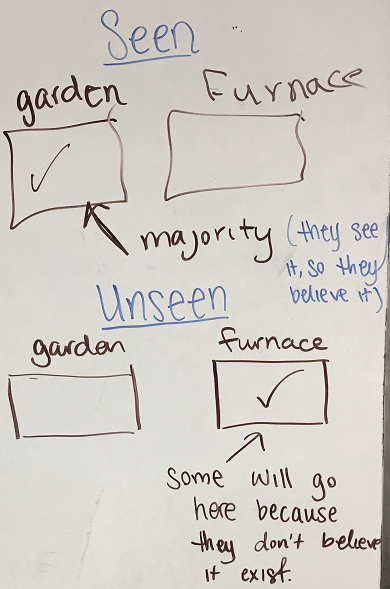 Seen
garden Furnace
majority (they see
it, so they
believe it)
Unseen
garden furnace
Some will go
here because
they don't believe
it exist.